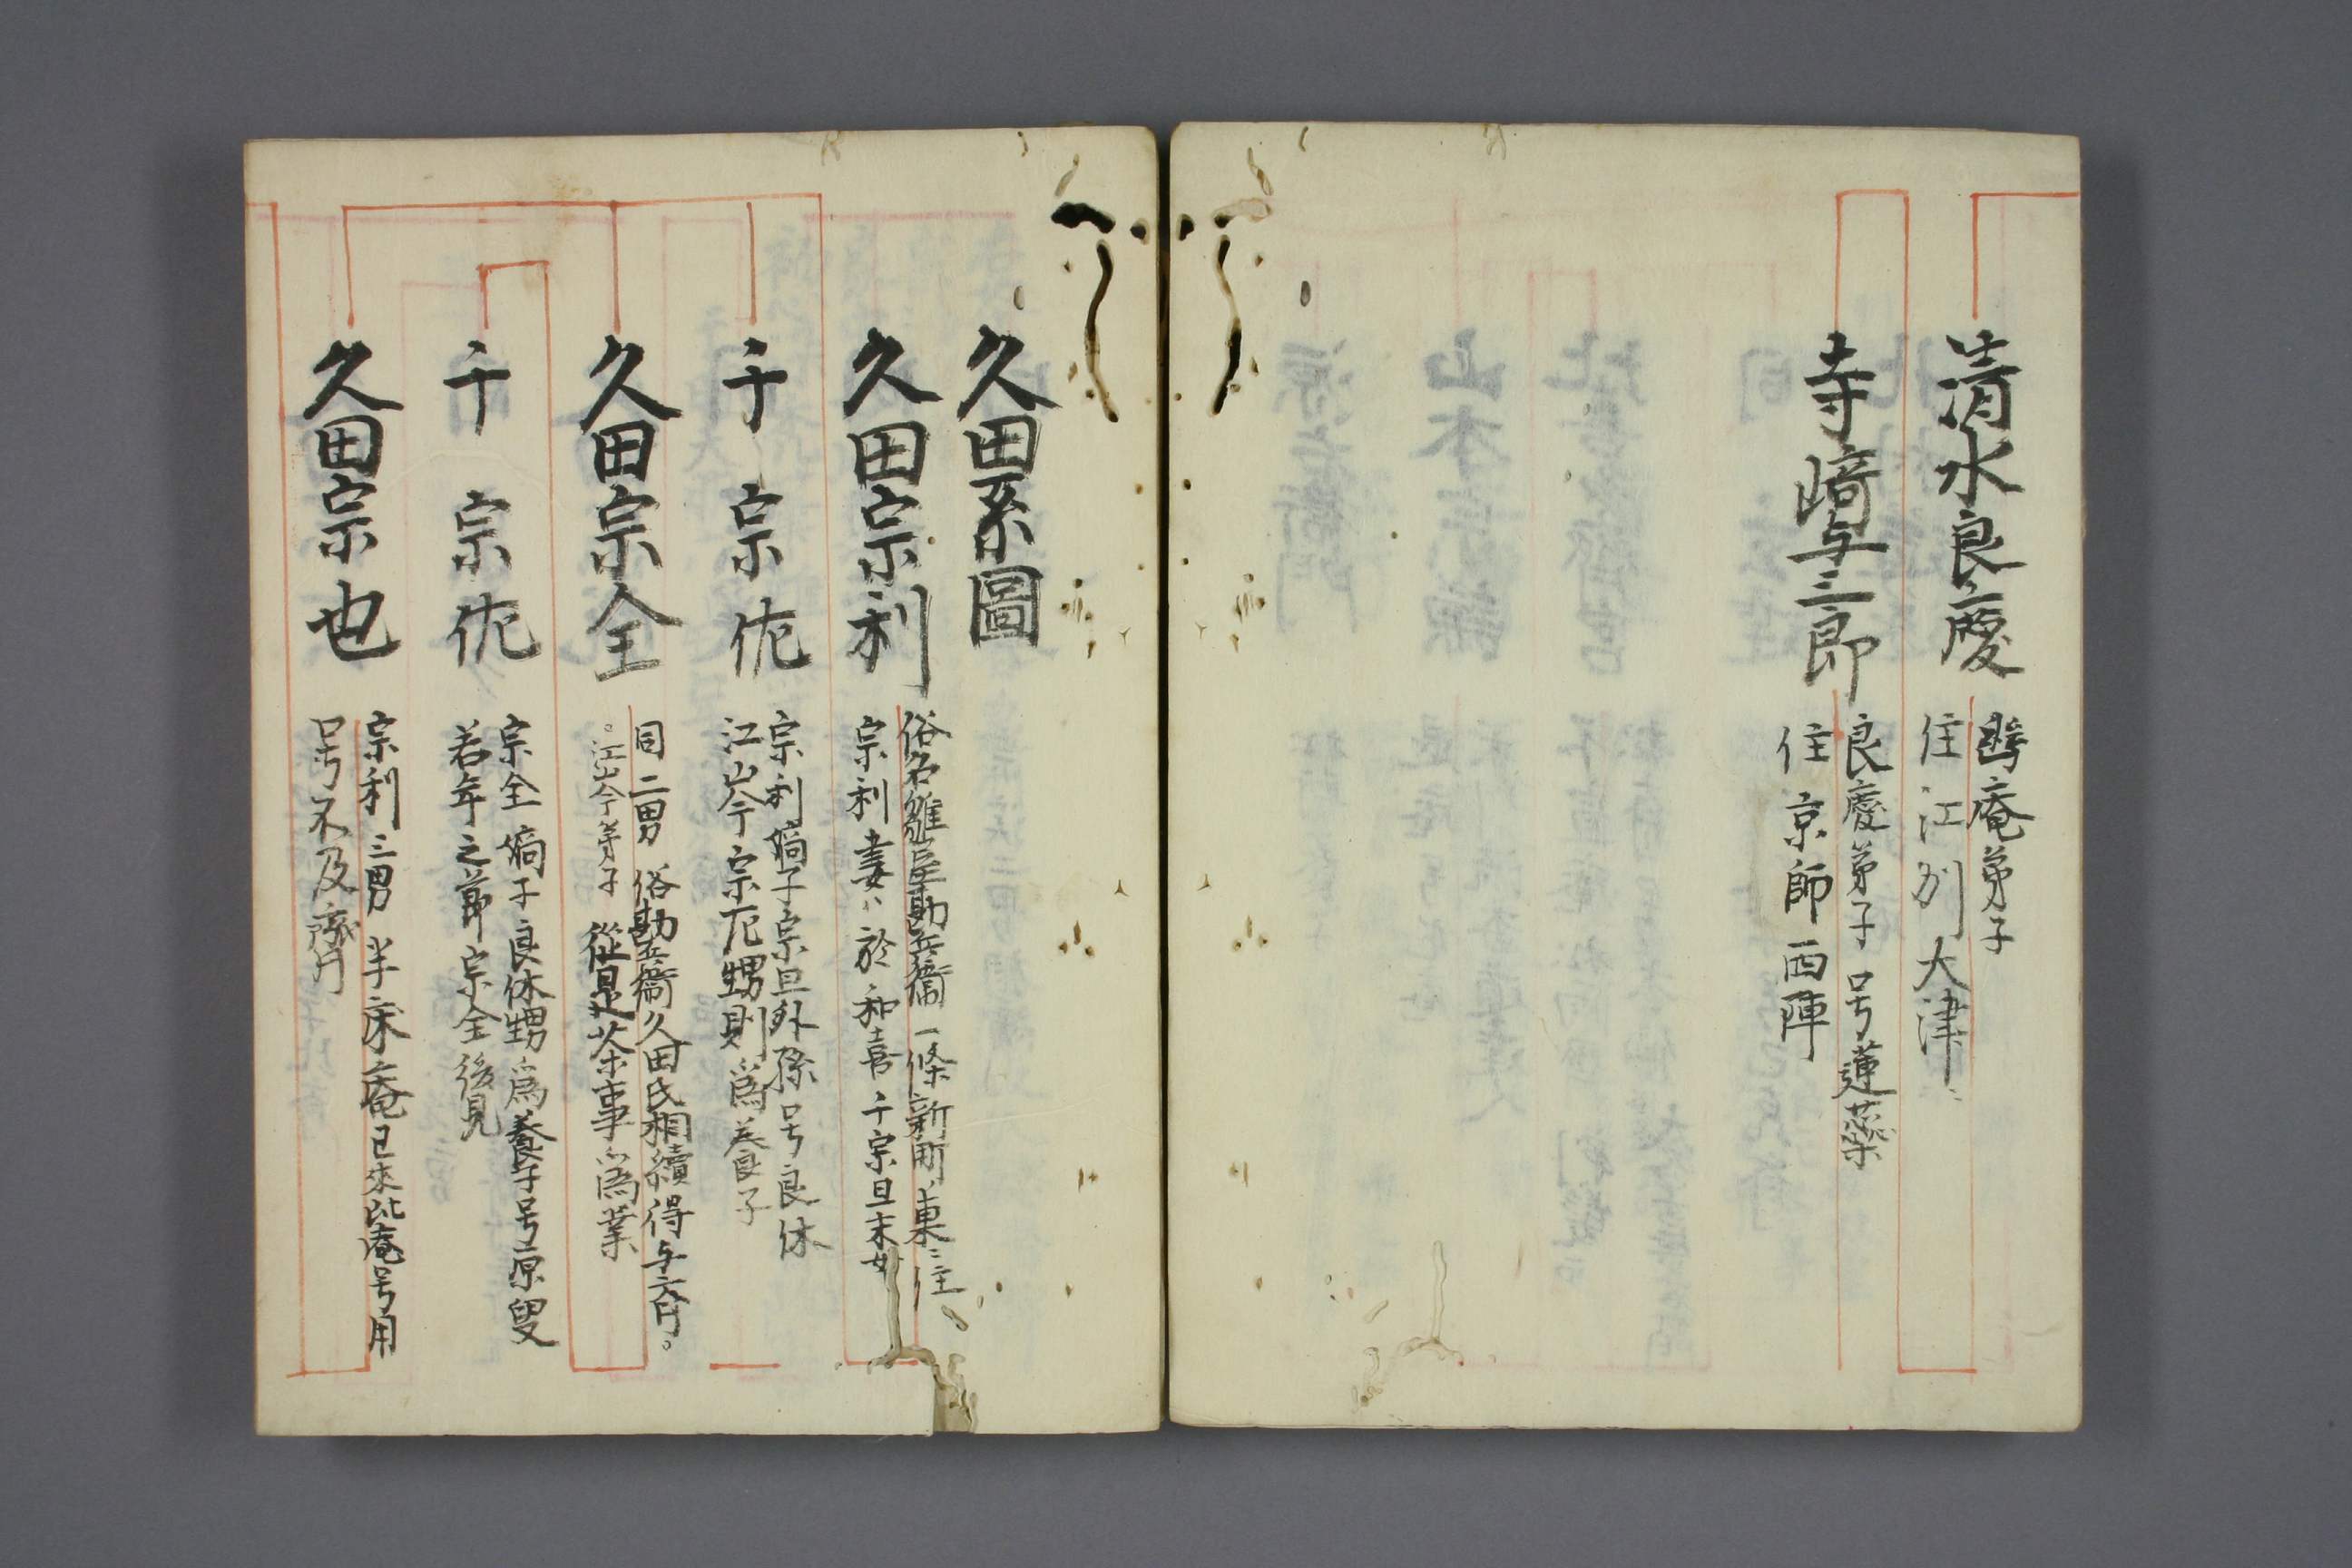 清水良慶
幽庵弟子
住江州大津
寺﨑与三郎
良慶弟子 号蓮蘂
住京師西陣
久田系圖
久田宗利
俗名雛屋勘兵衞一條新町東ニ住
宗利妻ハ於和喜千宗旦末女
千宗佐
宗利嫡子宗旦外孫号良休
江岑宗佐甥則為養子
久田宗全
同二男 俗勘兵衞久田氏相續得与斎号。
。江岑弟子 從是茶事為業
千宗佐
宗全嫡子良休甥為養子号原叟
若年之節宗全後見
久田宗也
宗利三男半床庵已来此庵号用
号不及齋